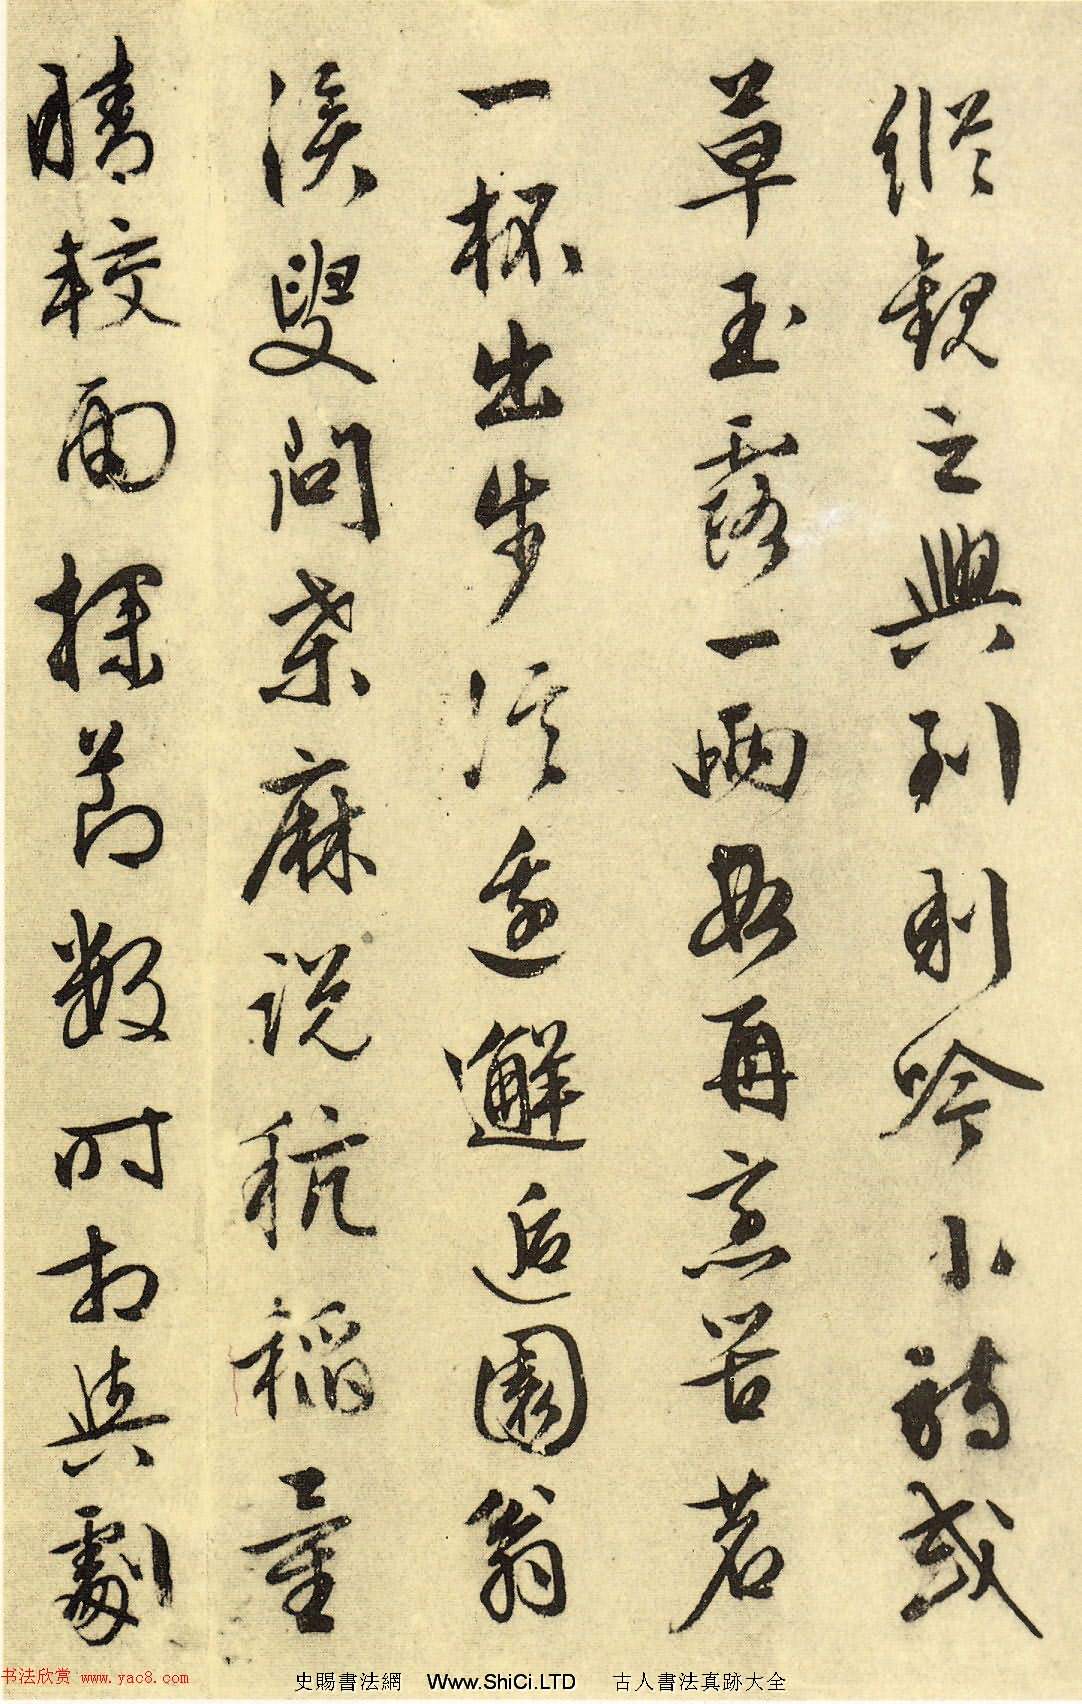 縱觀之興到則吟小詩或
草玉露一兩段再烹苦茗
一杯出步溪邊邂逅園翁
溪叟問桑麻說秔稻量
晴較雨探節數時相與劇
书法欣赏 www.yac8.com
史賜書法網 Www.ShiCi.LTD 古人書法真跡大全